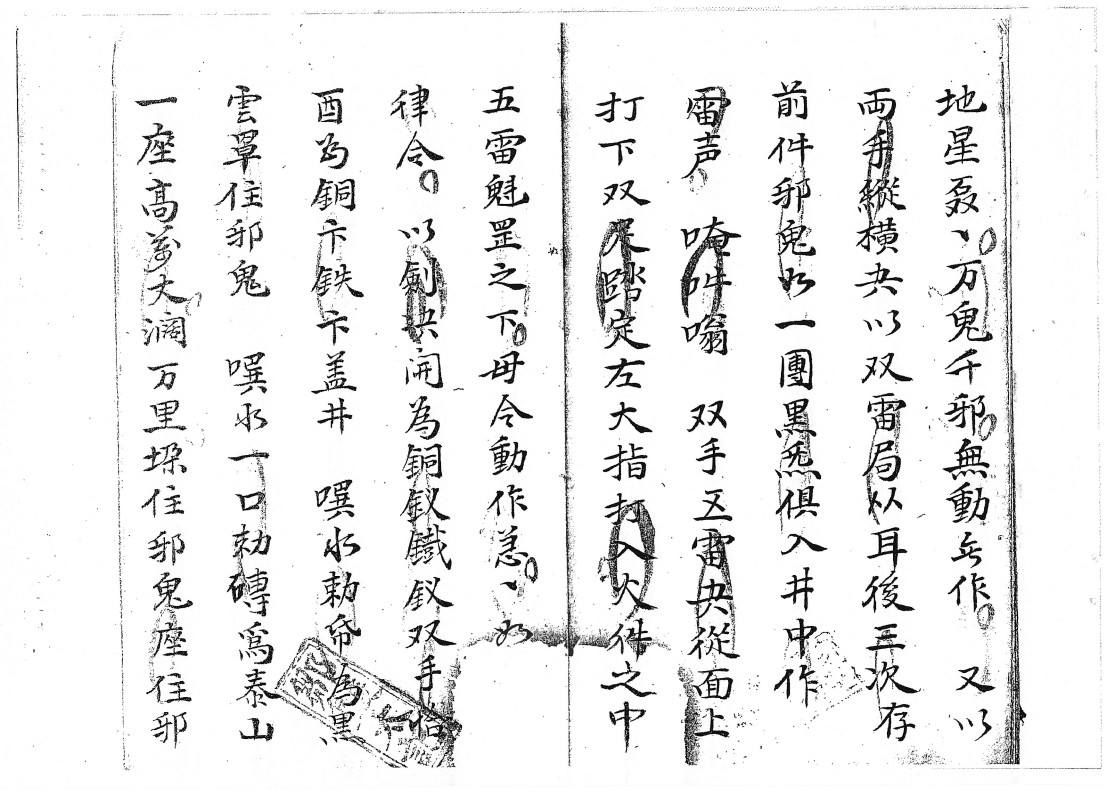 地星磊〻万鬼千邪無動无作　又以
両手縱橫决以双雷局从耳後三次存
前件邪鬼如一團黑炁俱入井中作
雷声　唵吽嗡　双手五雷决從面上
打下双足踏定左大指打入火件之中
五雷魁罡之下毋令動作急〻如
律令　以劍决開為銅釵鐵釵双手掐
酉為銅卞鉄卞盖井　噀水勅帋為黑
雲罩住邪鬼　噀水一口勅磚為泰山
一座高萬丈濶万里垛住邪鬼座住邪